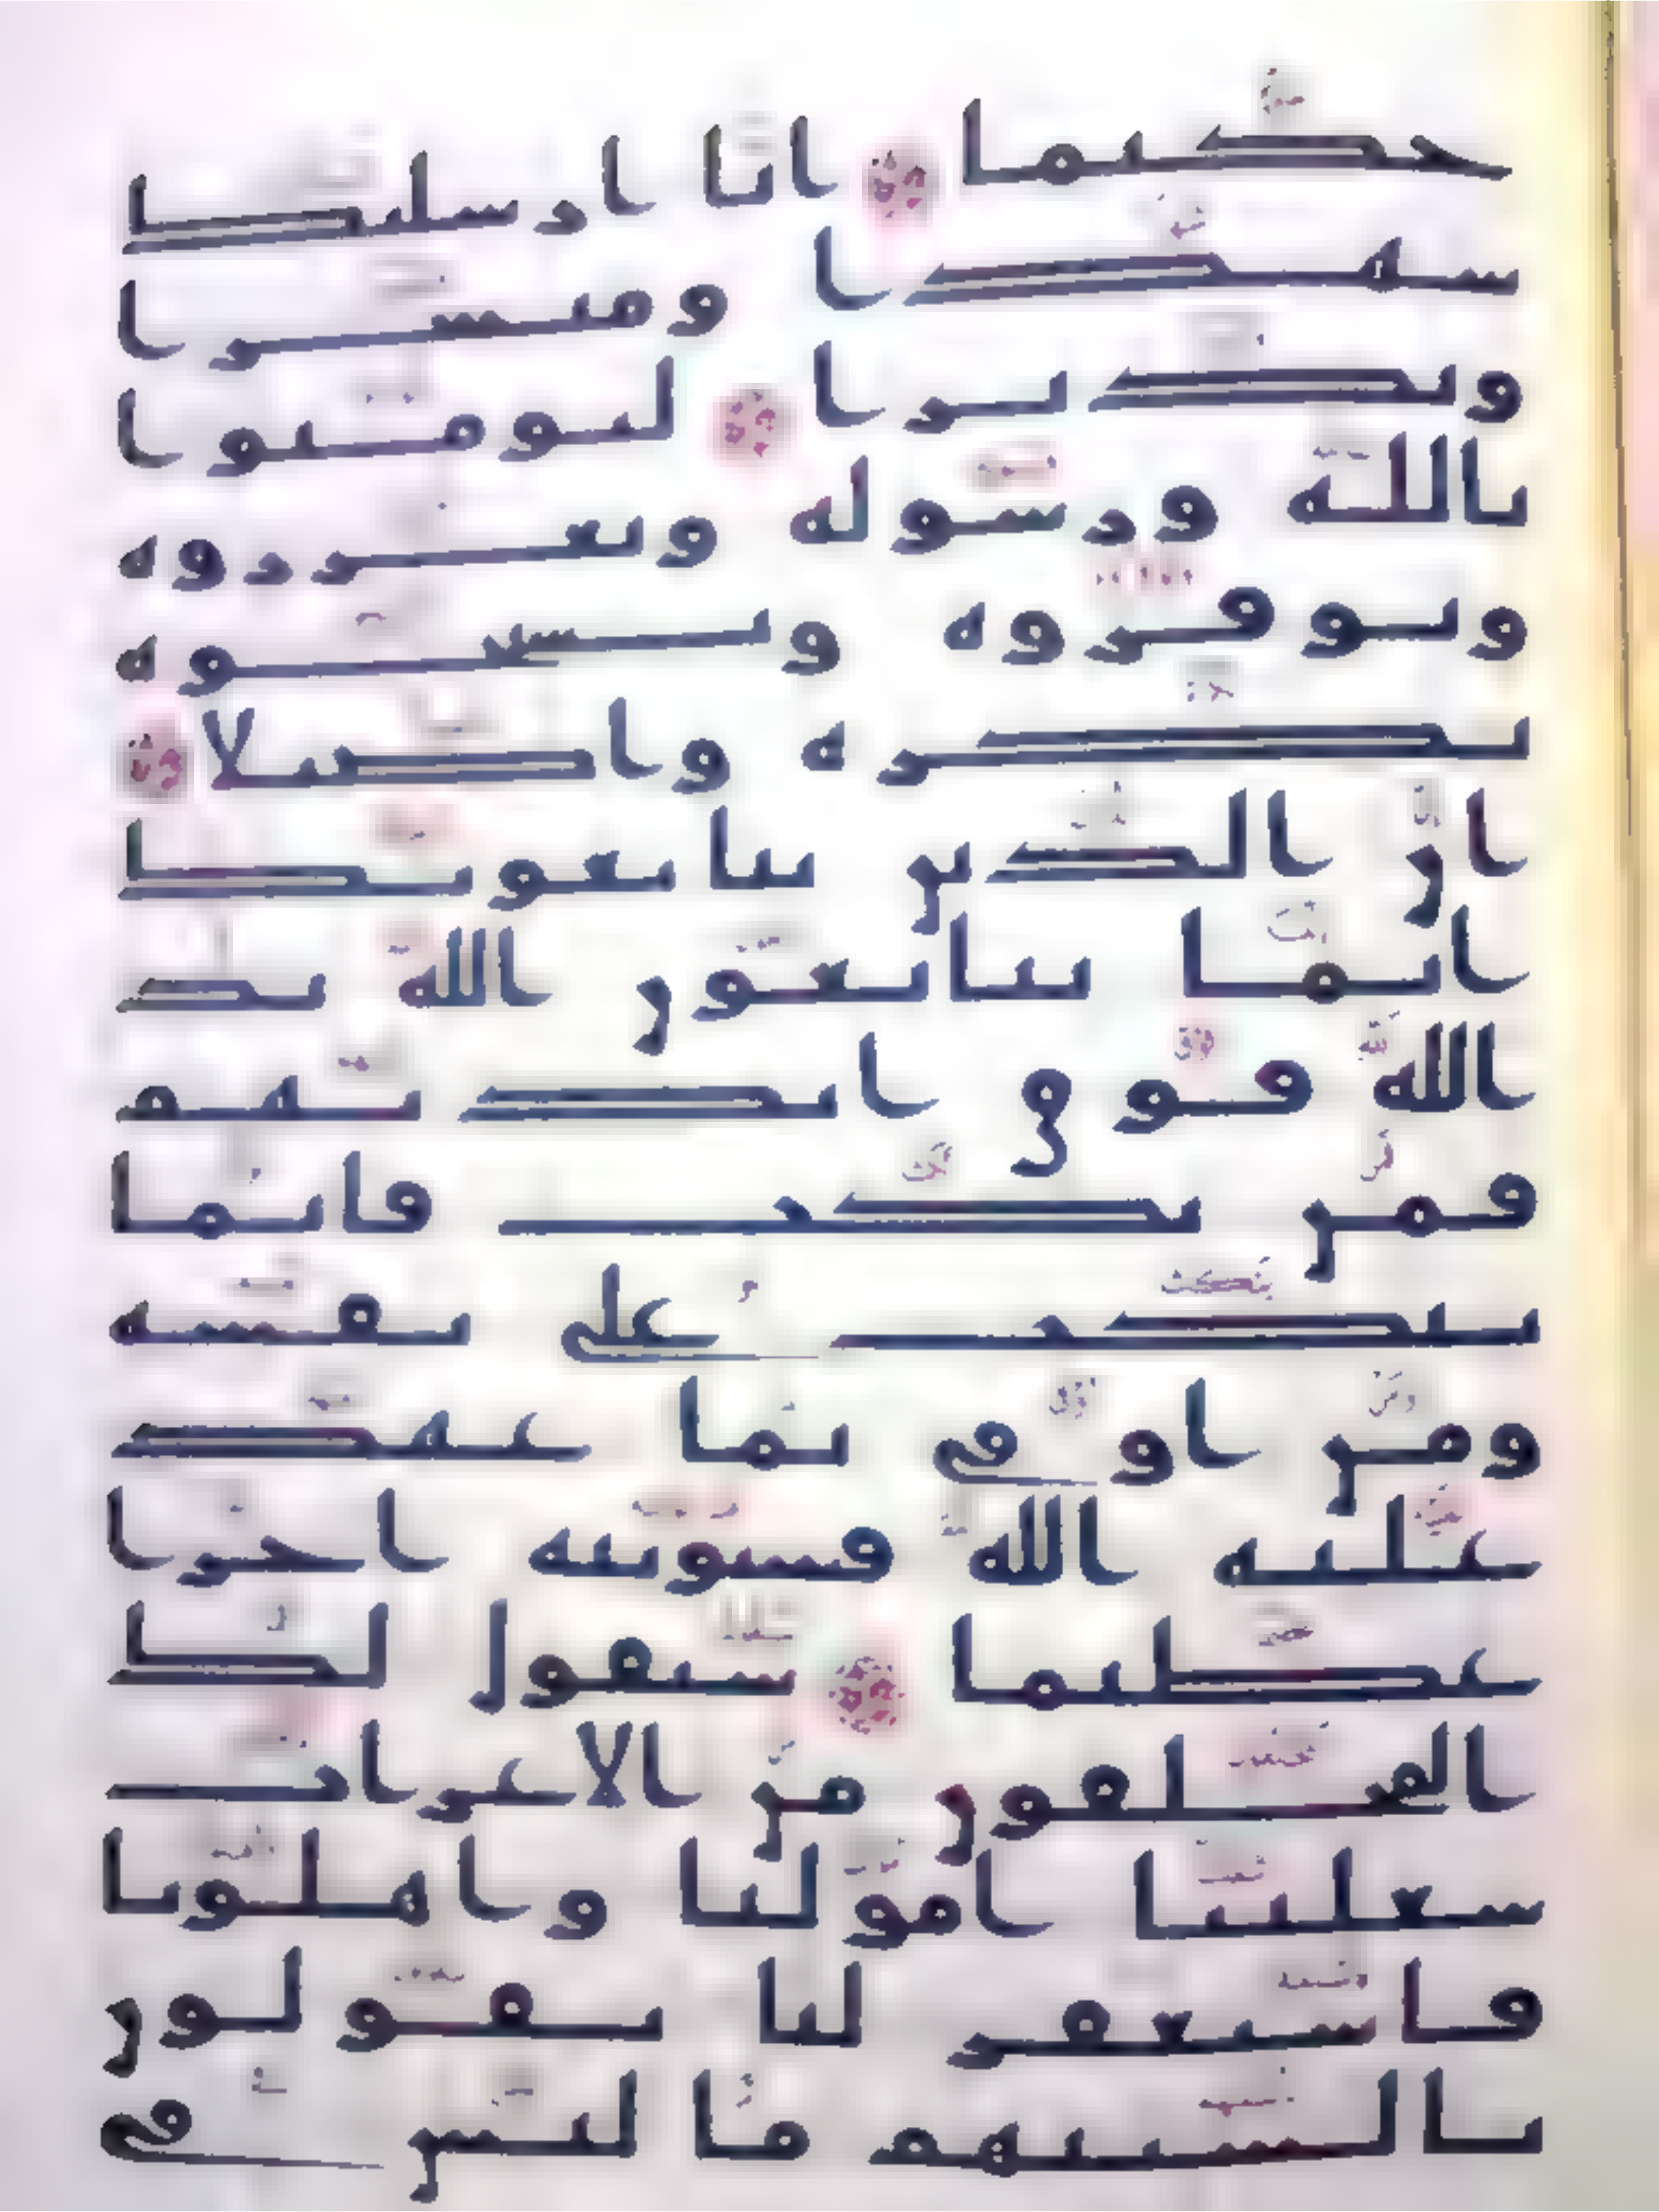 حكيما انا ارسلنك
شهدا ومبشرا
ونذيرا لتومنوا
بالله ورسوله وتعزروه
وتوقروه وتسبحوه
بكرة واصيلا
ان الذين يبايعونك
انما يبايعون الله يد
الله فوق ايديهم
فمن نكث فانما
ينكث على نفسه
ومن اوفى بما عهد
عليه الله فسيوتيه اجرا
عظيما سيقول لك
المخلفون من الاعراب
شغلتنا امولنا واهلونا
فاستغفر لنا يقولون
بالسنتهم ما ليس في